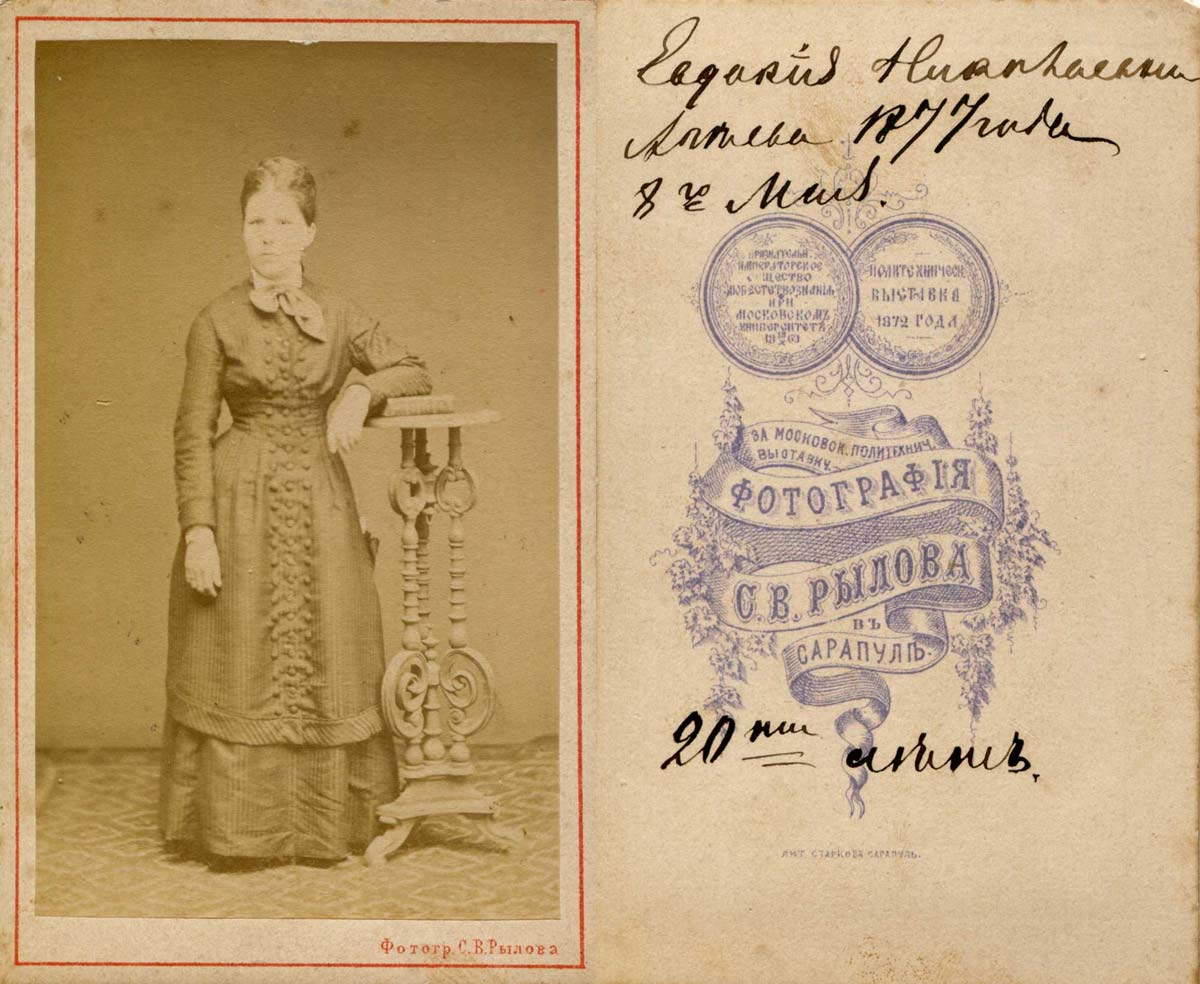 Фотогр. С.В.Рылова
Евдокія Николаевна
1877 года
8го Мая.
ИМПЕРАТОРСКОЕ
ЛЮБ. ЕСТЕСТВОЗНАНІЯ
ПРИ
МОСКОВСКОМЪ
УНИВЕРСИТЕТѢ
ПОЛИТЕХНИЧЕСК.
ВЫСТАВКА
1872 ГОДА
ЗА МОСКОВСК. ПОЛИТЕХНИЧ.
ВЫСТАВКУ
ФОТОГРАФІЯ
С. В. РЫЛОВА
ВЪ
САРАПУЛѢ.
20ти лѣтъ.
ЛИТ. СТАРКОВА САРАПУЛЪ.